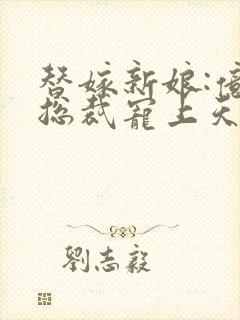 替嫁新娘:億
总裁寵上天
劉志毅